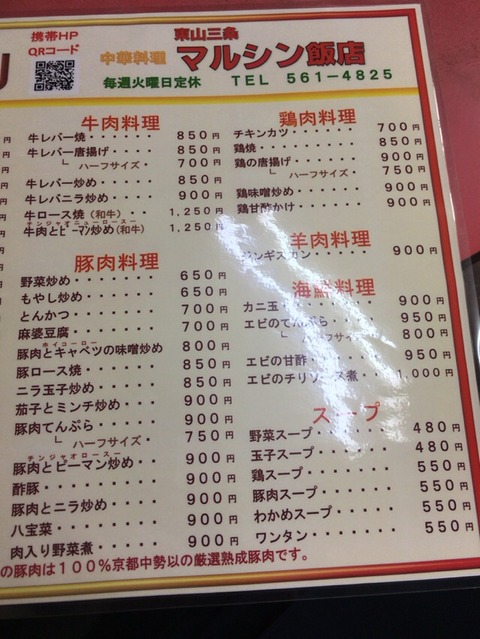 携帯HP
QRコード
東山三条
中華料理 マルシン飯店
毎週火曜日定休 TEL 561-4825
牛肉料理
牛レバー焼・・・・・850円
牛レバー唐揚げ・・・850円
└ ハーフサイズ・700円
牛レバー炒め・・・・850円
牛レバニラ炒め・・・900円
牛ロース焼(和牛)・・・1,250円
チンジャオニューロースー
牛肉とピーマン炒め(和牛) 1,250円
豚肉料理
野菜炒め・・・・・・650円
もやし炒め・・・・・650円
とんかつ・・・・・・700円
麻婆豆腐・・・・・・700円
ホイコーロー
豚肉とキャベツの味噌炒め 800円
豚ロース焼・・・・・850円
ニラ玉子炒め・・・・850円
茄子とミンチ炒め・・900円
豚肉てんぷら・・・・900円
└ ハーフサイズ・750円
チンジャオロースー
豚肉とピーマン炒め・・900円
酢豚・・・・・・・・900円
豚肉とニラ炒め・・・900円
八宝菜・・・・・・・900円
肉入り野菜煮・・・・900円
鶏肉料理
チキンカツ・・・・・・700円
鶏焼・・・・・・・・・850円
鶏の唐揚げ・・・・・・900円
└ ハーフサイズ・750円
鶏味噌炒め・・・・・・900円
鶏甘酢かけ・・・・・・900円
羊肉料理
ジンギスカン・・・・・900円
海鮮料理
カニ玉・・・・・・・・900円
エビのてんぷら・・・・950円
└ ハーフサイズ・800円
エビの甘酢・・・・・・950円
エビのチリソース煮・・1,000円
スープ
野菜スープ・・・・・・480円
玉子スープ・・・・・・480円
鶏スープ・・・・・・・550円
豚肉スープ・・・・・・550円
わかめスープ・・・・・550円
ワンタン・・・・・・・550円
の豚肉は100%京都中勢以の厳選熟成豚肉です。